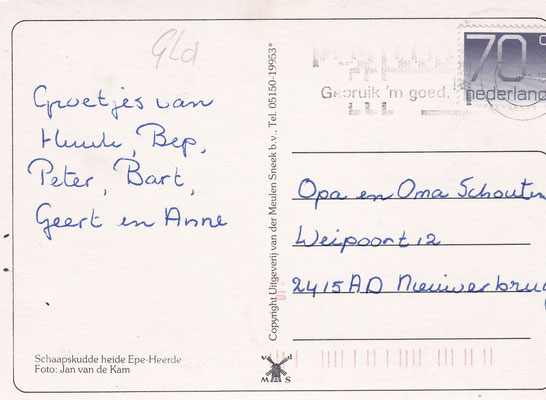 Gld
Groetjes van
Huub, Bep,
Peter, Bart,
Geert en Anne
Schaapskudde heide Epe-Heerde
Foto: Jan van de Kam
Copyright Uitgeverij van der Meulen Sneek b.v., Tel. 05150-19953*
v d
M S
Gebruik 'm goed.
70 c
nederland
Opa en Oma Schouten
Weipoort 12
2415 AD Nieuwerbru